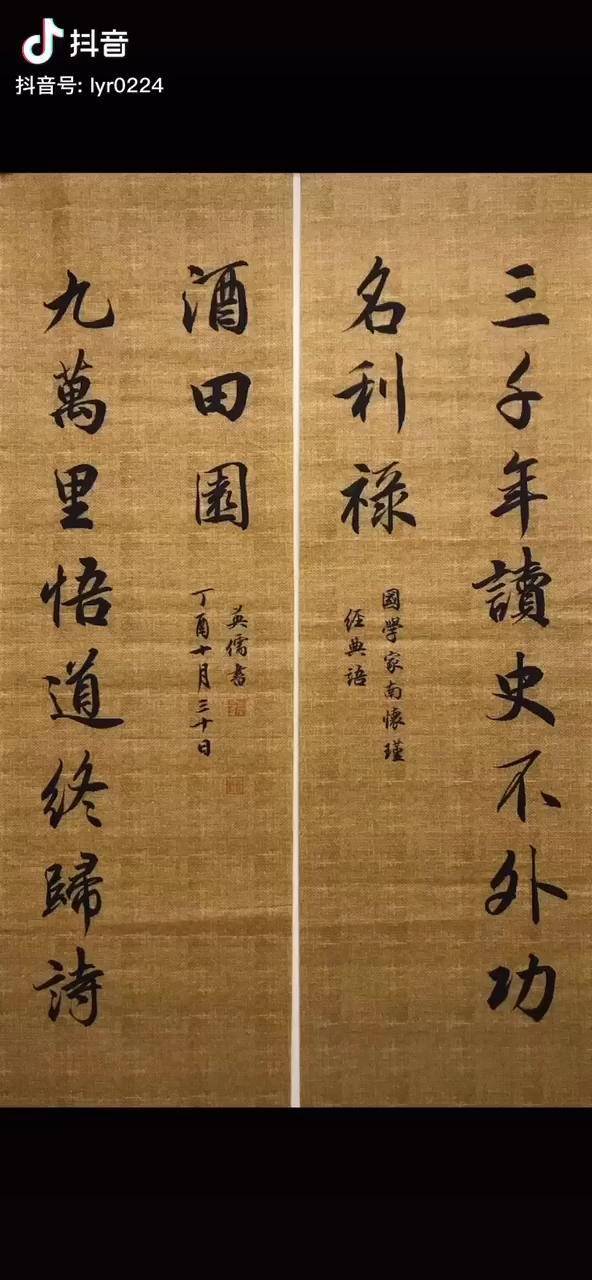 抖音
抖音号: lyr0224
三千年讀史不外功
名利祿
國學家南懷瑾
經典語
九萬里悟道終歸詩
酒田園
英儒書
丁酉十月三十日